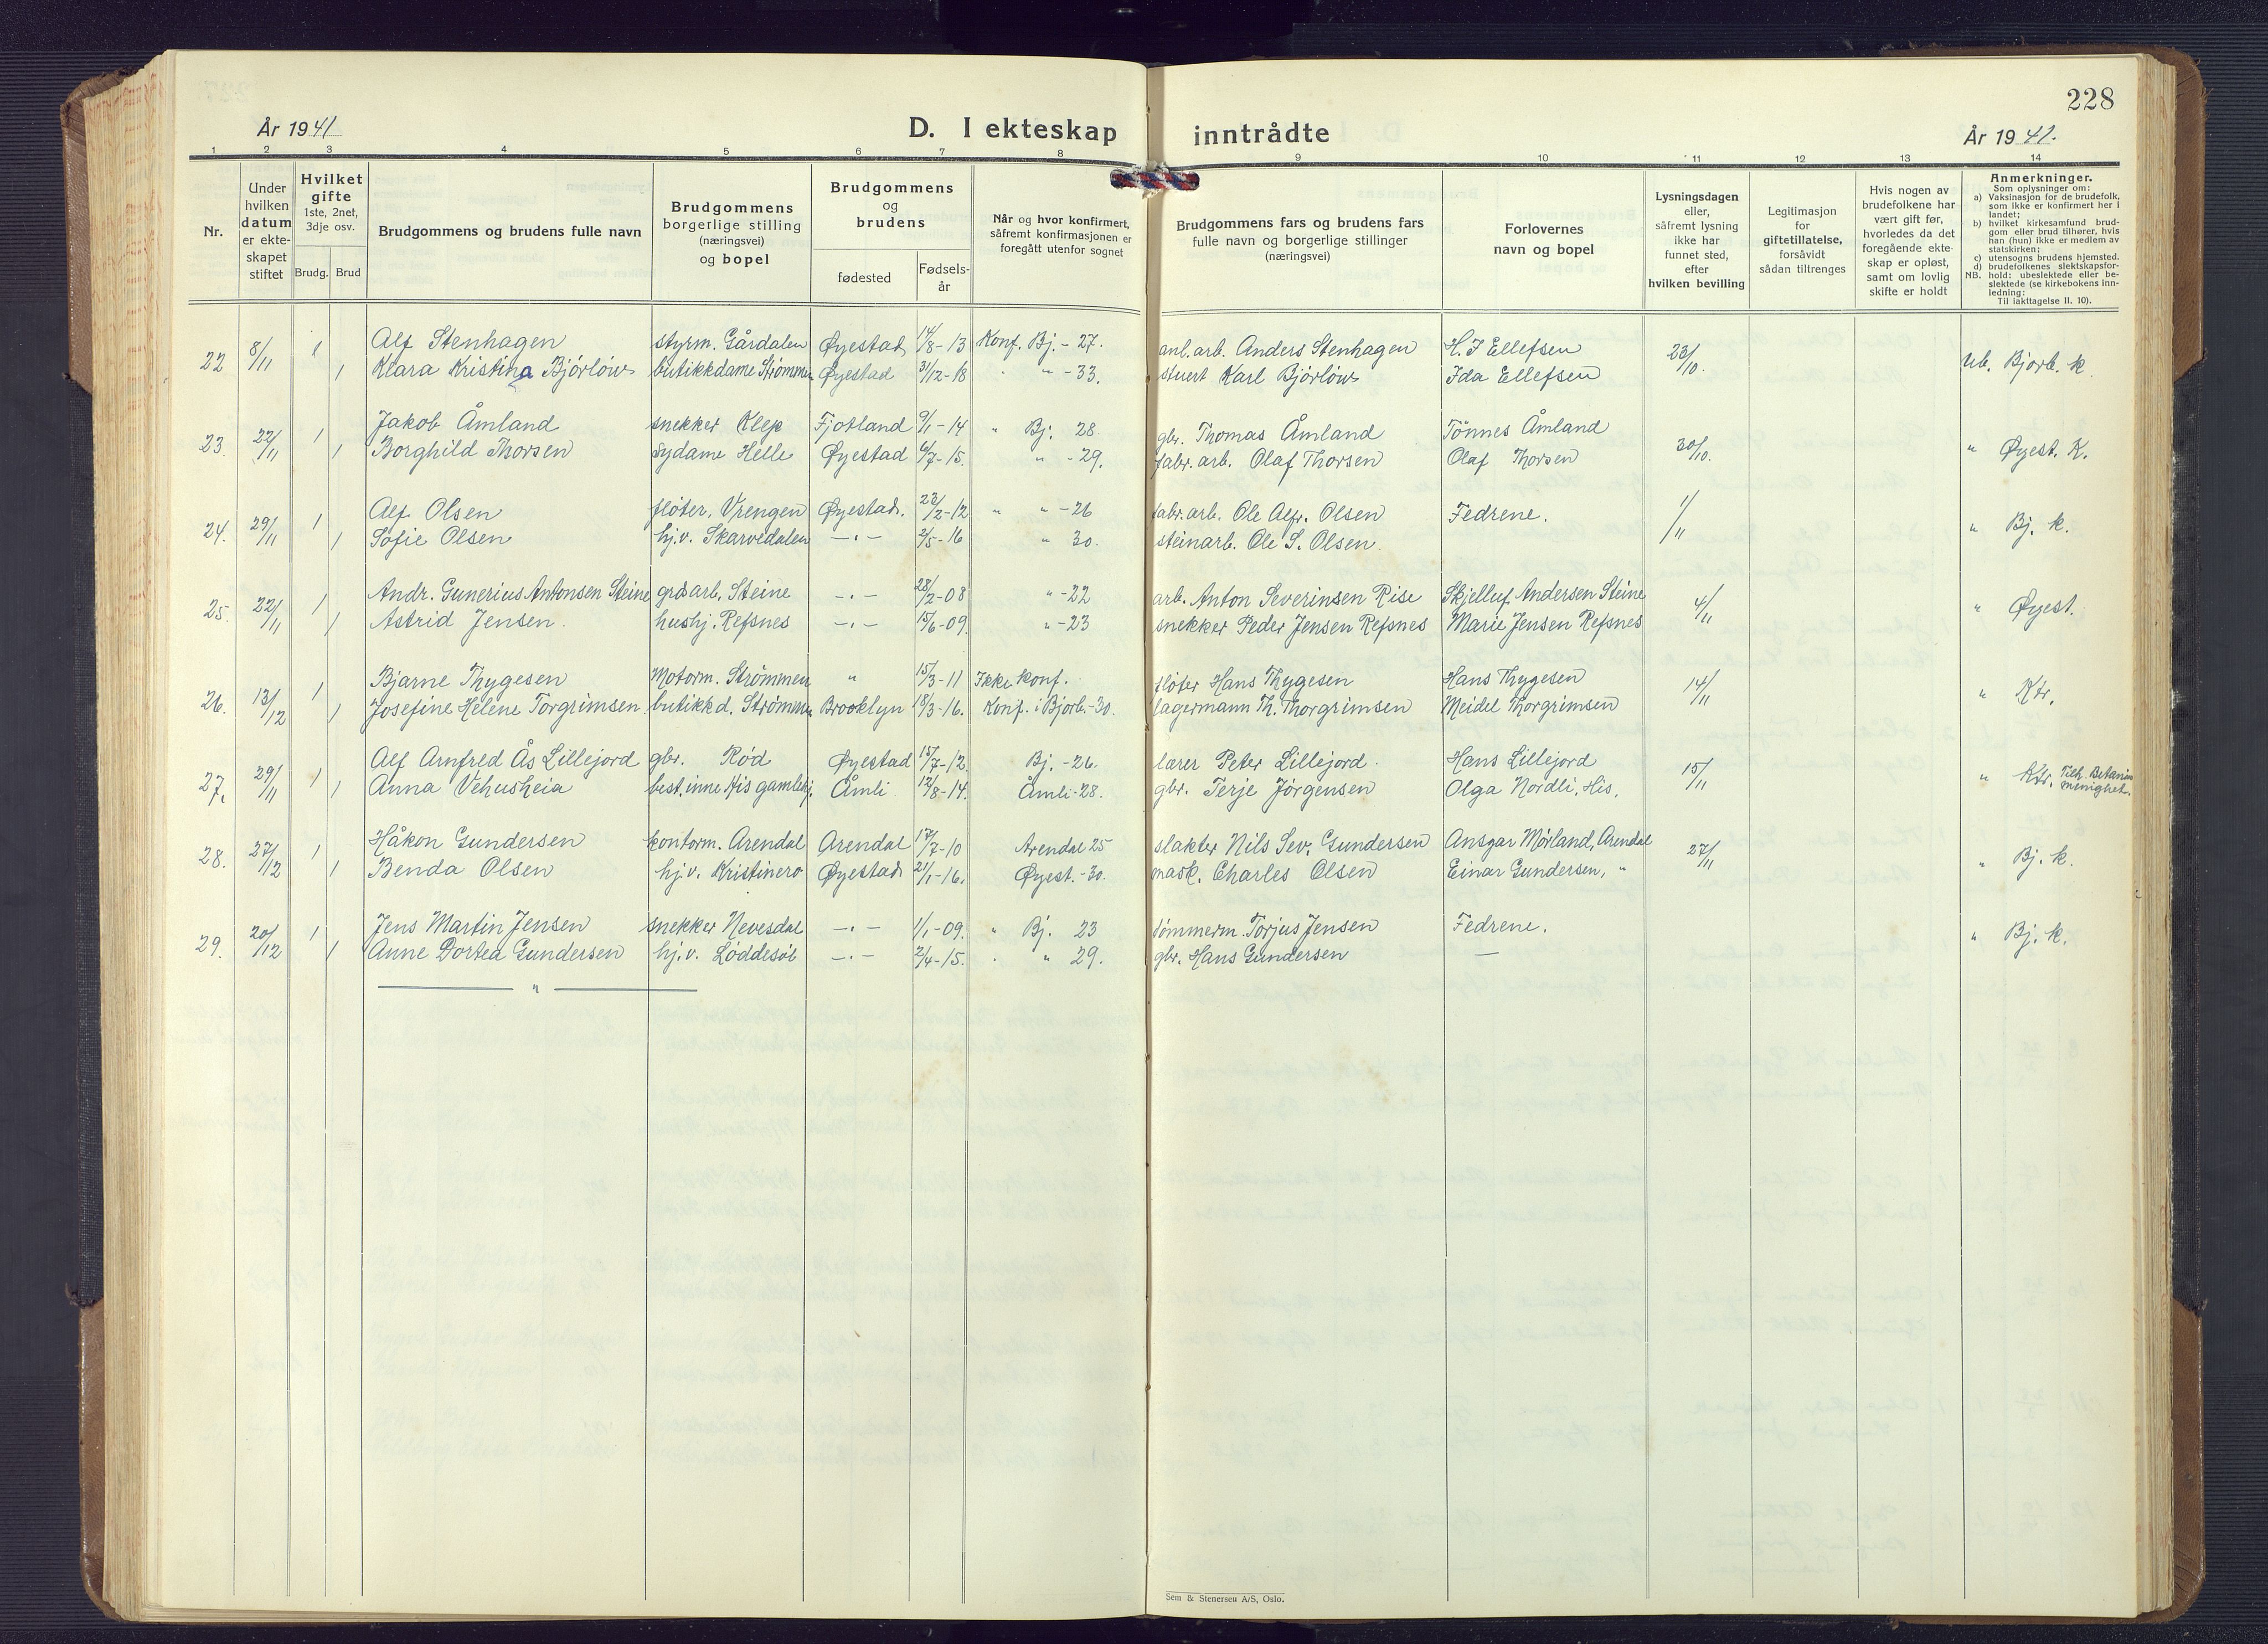 228
År 1941
D. I ekteskap inntrådte
År 1941.
1 2 3 4 5 6 7 8 9 10 11 12 13 14
Nr.
Under hvilken datum er ekte-skapet stiftet
Hvilket gifte 1ste, 2net, 3dje osv.
Brudg. Brud
Brudgommens og brudens fulle navn
Brudgommens borgerlige stilling (næringsvei) og bopel
Brudgommens og brudens
fødested
Fødsels-år
Når og hvor konfirmert, såfremt konfirmasjonen er foregått utenfor sognet
Brudgommens fars og brudens fars fulle navn og borgerlige stillinger (næringsvei)
Forlovernes navn og bopel
Lysningsdagen eller, såfremt lysning ikke har funnet sted, efter hvilken bevilling
Legitimasjon for giftetillatelse, forsåvidt sådan tiltrenges
Hvis nogen av brudefolkene har vært gift før, hvorledes da det foregående ekte-skap er opløst, samt om lovlig skifte er holdt
Anmerkninger.
Som oplysninger om:
a) Vaksinasjon for de brudefolk, som ikke er konfirmert her i landet;
b) hvilket kirkesamfund brud-gom eller brud tilhører, hvis han (hun) ikke er medlem av statskirken;
c) utensogns brudens hjemsted.
d) brudefolkenes slektskapsfor-hold: ubeslektede eller be-slektede (se kirkebokens inn-ledning:
NB. Til iakttagelse II. 10).
22 8/11 1 Alf Stenhagen styrm. Gårdalen Øyestad 14/8-13 Konf. Bj. - 27. anl.arb. Anders Stenhagen H. J Ellefsen 23/10. Ub. Bjorb. k
1 Klara Kristina Bjørløw butikkdame Strømmen Øyestad 31/12-18 " " -33. stuert Karl Bjørløw Ida Ellefsen
23. 22/11 1 Jakob Åmland snekker Klep Fjotland 9/1-14 " Bj. 28. gbr. Thomas Åmland Tønnes Åmland 30/10. " Øyest. K.
1 Borghild Thorsen Sydame Helle Øyestad 6/7-15. " -29. fabr.arb. Olaf Thorsen Olaf Thorsen
24. 29/11 1 Alf Olsen fløter, Vrengen Øyestad. 23/2-12 " " -26 fabr.arb. Ole Alfr. Olsen Fedrene. 1/11 " Bj. k.
1 Sofie Olsen hj.v. Skarvedalen -"- 2/5-16 " 30. steinarb. Ole S. Olsen.
25. 22/11 1 Andr. Gunerius Antonsen Steine grdsarb. Steine -"- 28/2-08 " -22 arb. Anton Severinsen Rise Skjelluf Andersen Steine 4/11 " Øyest.
1 Astrid Jensen. hushj. Refsnes -"- 15/6-09. " -23 snekker Peder Jensen Refsnes Marie Jensen Refsnes
26. 13/12 1 Bjarne Thygesen Motorm. Strømmen " 15/3-11 Ikke konf. fløter Hans Thygesen Hans Thygesen 14/11 " Ktr.
1 Josefine Helene Torgrimsen butikkd. Strømmen Brooklyn 18/3-16. Konf. i Bjorb.-30. lagermann Th. Thorgrimsen Meidel Thorgrimsen
27. 29/11 1 Alf Arnfred Ås Lillejord gbr. Rød Øyestad 15/7-12. Bj. -26. lærer Peter Lillejord. Hans Lillejord 15/11 " Ktr. Tilh. Betania menighet.
1 Anna Vehusheia best.inne His gamlehj. Åmli 12/8-14. Åmli-28. gbr. Terje Jørgensen Olga Nordli, His.
28. 27/12 1 Håkon Gundersen kontorm. Arendal Arendal 17/7-10 Arendal 25 slakter Nils Sev. Gundersen Ansgar Mørland, Arendal 27/11 " Bj. k.
1 Benda Olsen hj.v. Kristinero Øyestad 21/1-16. Øyest.-30. mask. Charles Olsen Einar Gundersen, "
29. 20/12 1 Jens Martin Jensen snekker Nevesdal -"- 1/1-09. " Bj. 23 tømmerm. Torjus Jensen Fedrene. " Bj. k.
1 Anne Dortea Gundersen hj.v. Løddesøl -"- 2/4-15. " " 29. gbr. Hans Gundersen —
— " —
Sem & Stenersen A/S, Oslo.